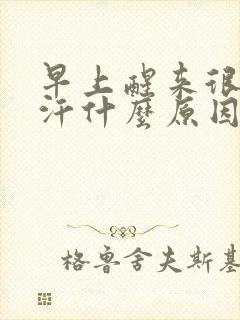 早上醒来很
汗什麼原因
格鲁舍夫斯基